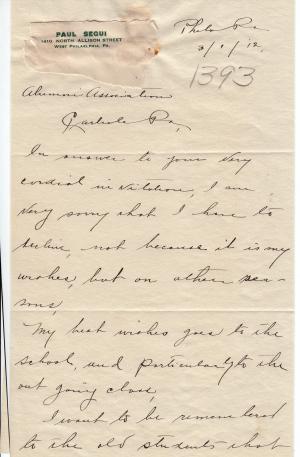 PAUL SEGUI
1410 NORTH ALLISON STREET
WEST PHILADELPHIA, PA.
Phila Pa
3/1/12.
1393
Alumni Association
Carlisle Pa,
In answer to your very
cordial invitation, I am
very sorry that I have to
decline, not because it is my
wishes, but on other rea-
sons,
My best wishes goes to the
school, and particularly to the
out going class,
I want to be remembered
to the old students that